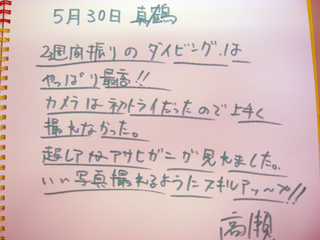 5月30日 真鶴
2週間振りのダイビングは
やっぱり最高!!
カメラは初トライだったので上手く
撮れなかった。
超レアなアサヒガニが見れました。
いい写真撮れるようにスキルアップ!!
高瀬